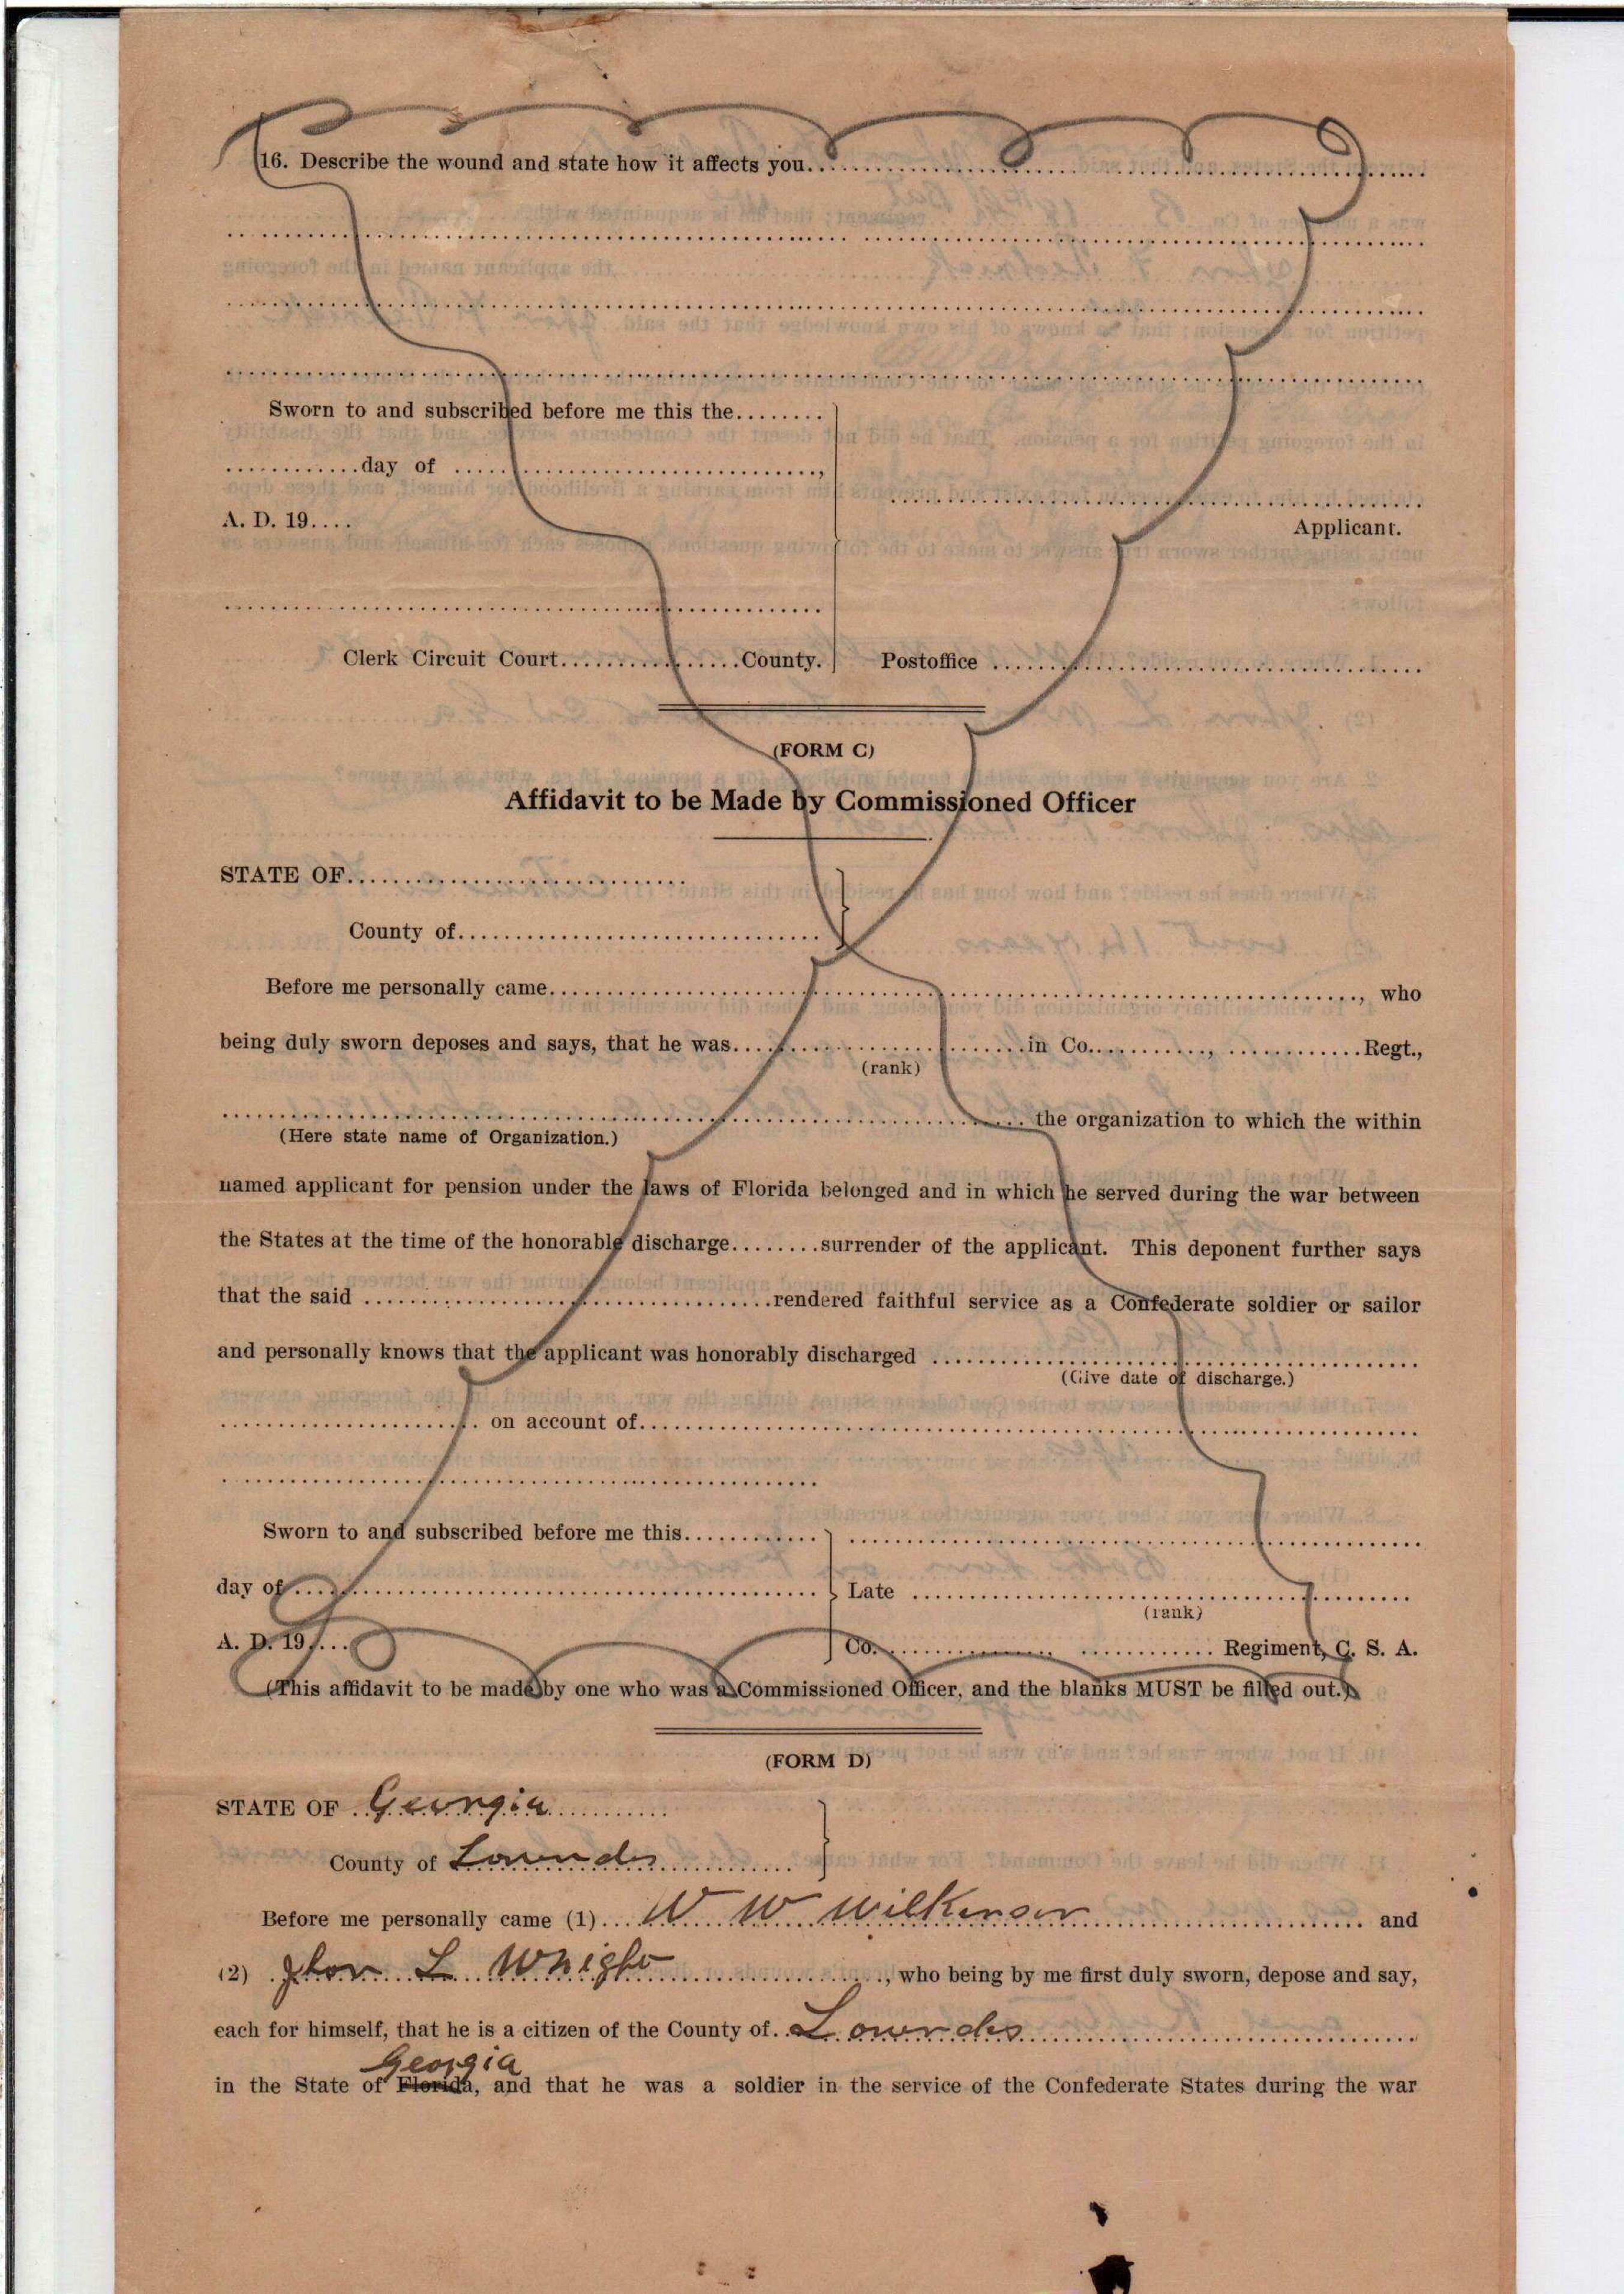 16. Describe the wound and state how it affects you........................................
........................................
........................................
........................................
Sworn to and subscribed before me this the........
............day of ........................................,
A. D. 19....
........................................
Applicant.
........................................
Clerk Circuit Court..................County.
Postoffice ........................................
(FORM C)
Affidavit to be Made by Commissioned Officer
STATE OF........................................
County of........................................
Before me personally came........................................, who
being duly sworn deposes and says, that he was..............................in Co............, ............Regt.,
(rank)
........................................ the organization to which the within
(Here state name of Organization.)
named applicant for pension under the laws of Florida belonged and in which he served during the war between
the States at the time of the honorable discharge........surrender of the applicant. This deponent further says
that the said ........................................rendered faithful service as a Confederate soldier or sailor
and personally knows that the applicant was honorably discharged ........................................
(Give date of discharge.)
.......................... on account of........................................
........................................
Sworn to and subscribed before me this............
........................................
day of........................................
Late ........................................
(rank)
A. D. 19.....
Co................... ............. Regiment, C. S. A.
(This affidavit to be made by one who was a Commissioned Officer, and the blanks MUST be filled out.)
(FORM D)
STATE OF Georgia
County of Lowndes
Before me personally came (1) W W Wilkinson and
(2) Jhon L Whight, who being by me first duly sworn, depose and say,
each for himself, that he is a citizen of the County of Lowndes
Georgia
in the State of Florida, and that he was a soldier in the service of the Confederate States during the war